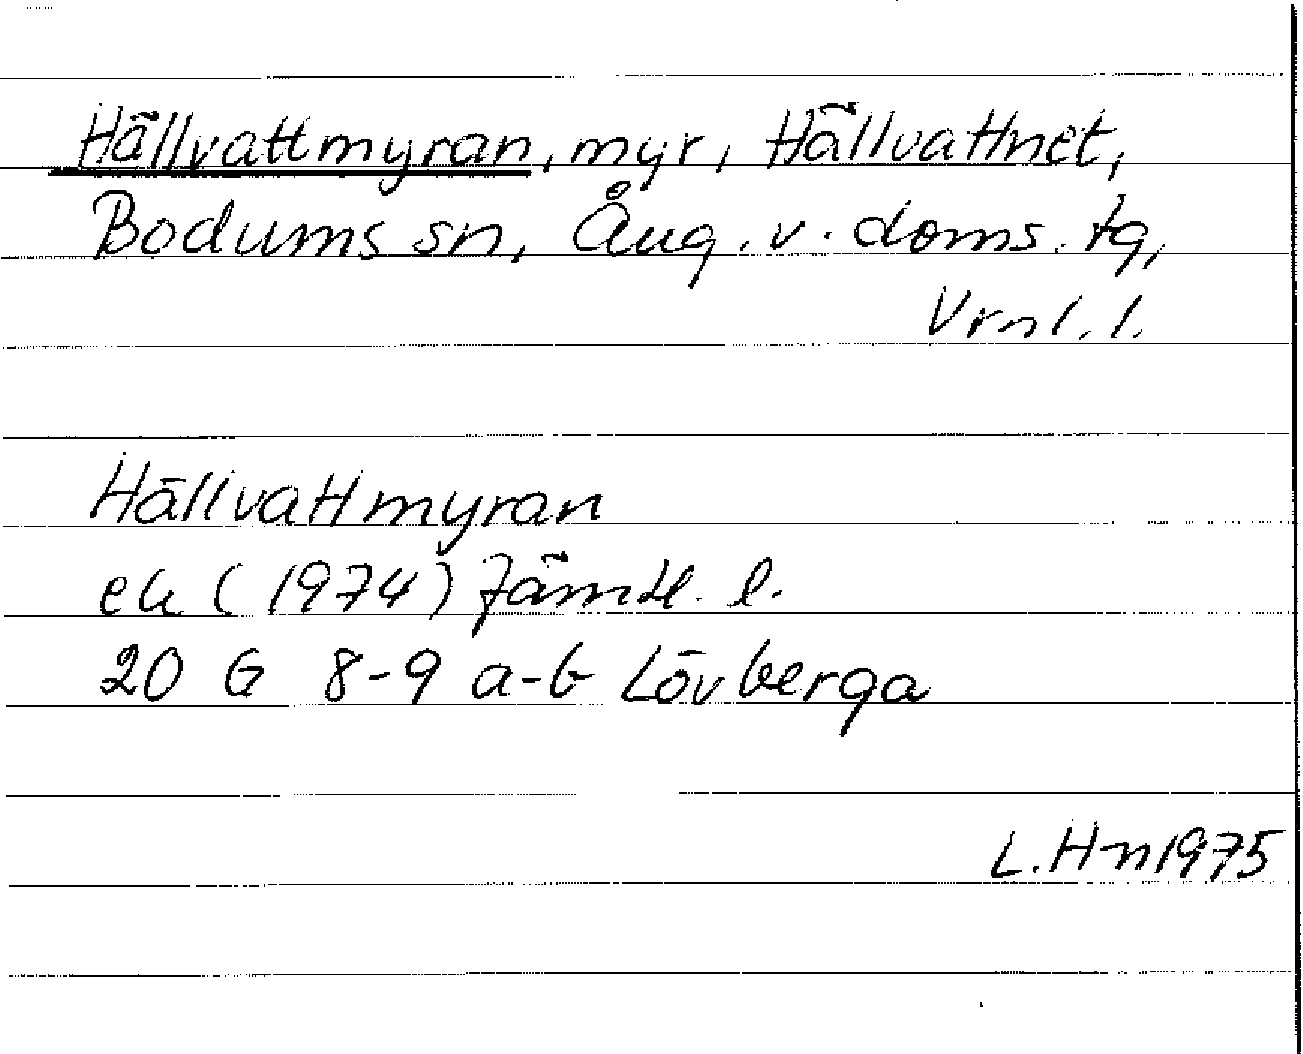 Hällvattmyran, myr, Hällvattnet,
Bodums sn, Ång. v. doms. tg,
Vrnl. l.
Hällvattmyran
ek (1974) Jämtl. l.
20 G 8-9 a-b Lövberga
L. H-n 1975